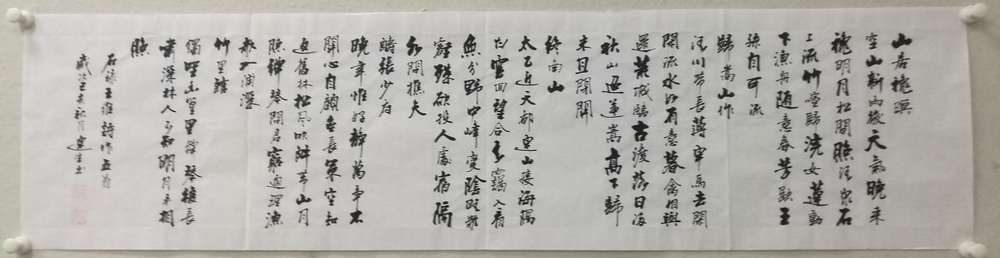 山居秋暝
空山新雨後天氣晚來
秋明月松間照清泉石
上流竹喧歸浣女蓮動
下漁舟隨意春芳歇王
孫自可
歸嵩山作
清川帶長薄車馬去閑
閑流水如有意暮禽相與
還荒城臨古渡落日滿
秋山迢遞嵩高下歸
來且閉關
終南山
太乙近天都連山接海隅
白雲回望合青靄入看
無分野中峰變陰晴衆
壑殊欲投人處宿隔
水問樵夫
酬張少府
晚年惟好靜萬事不
關心自顧無長策空知
返舊林松風吹解帶山月
照彈琴問君窮通理漁
歌入浦深
竹里館
獨坐幽篁里彈琴復長
嘯深林人不知明月來相
照
右録王維詩作五首
歲次 秋月 書